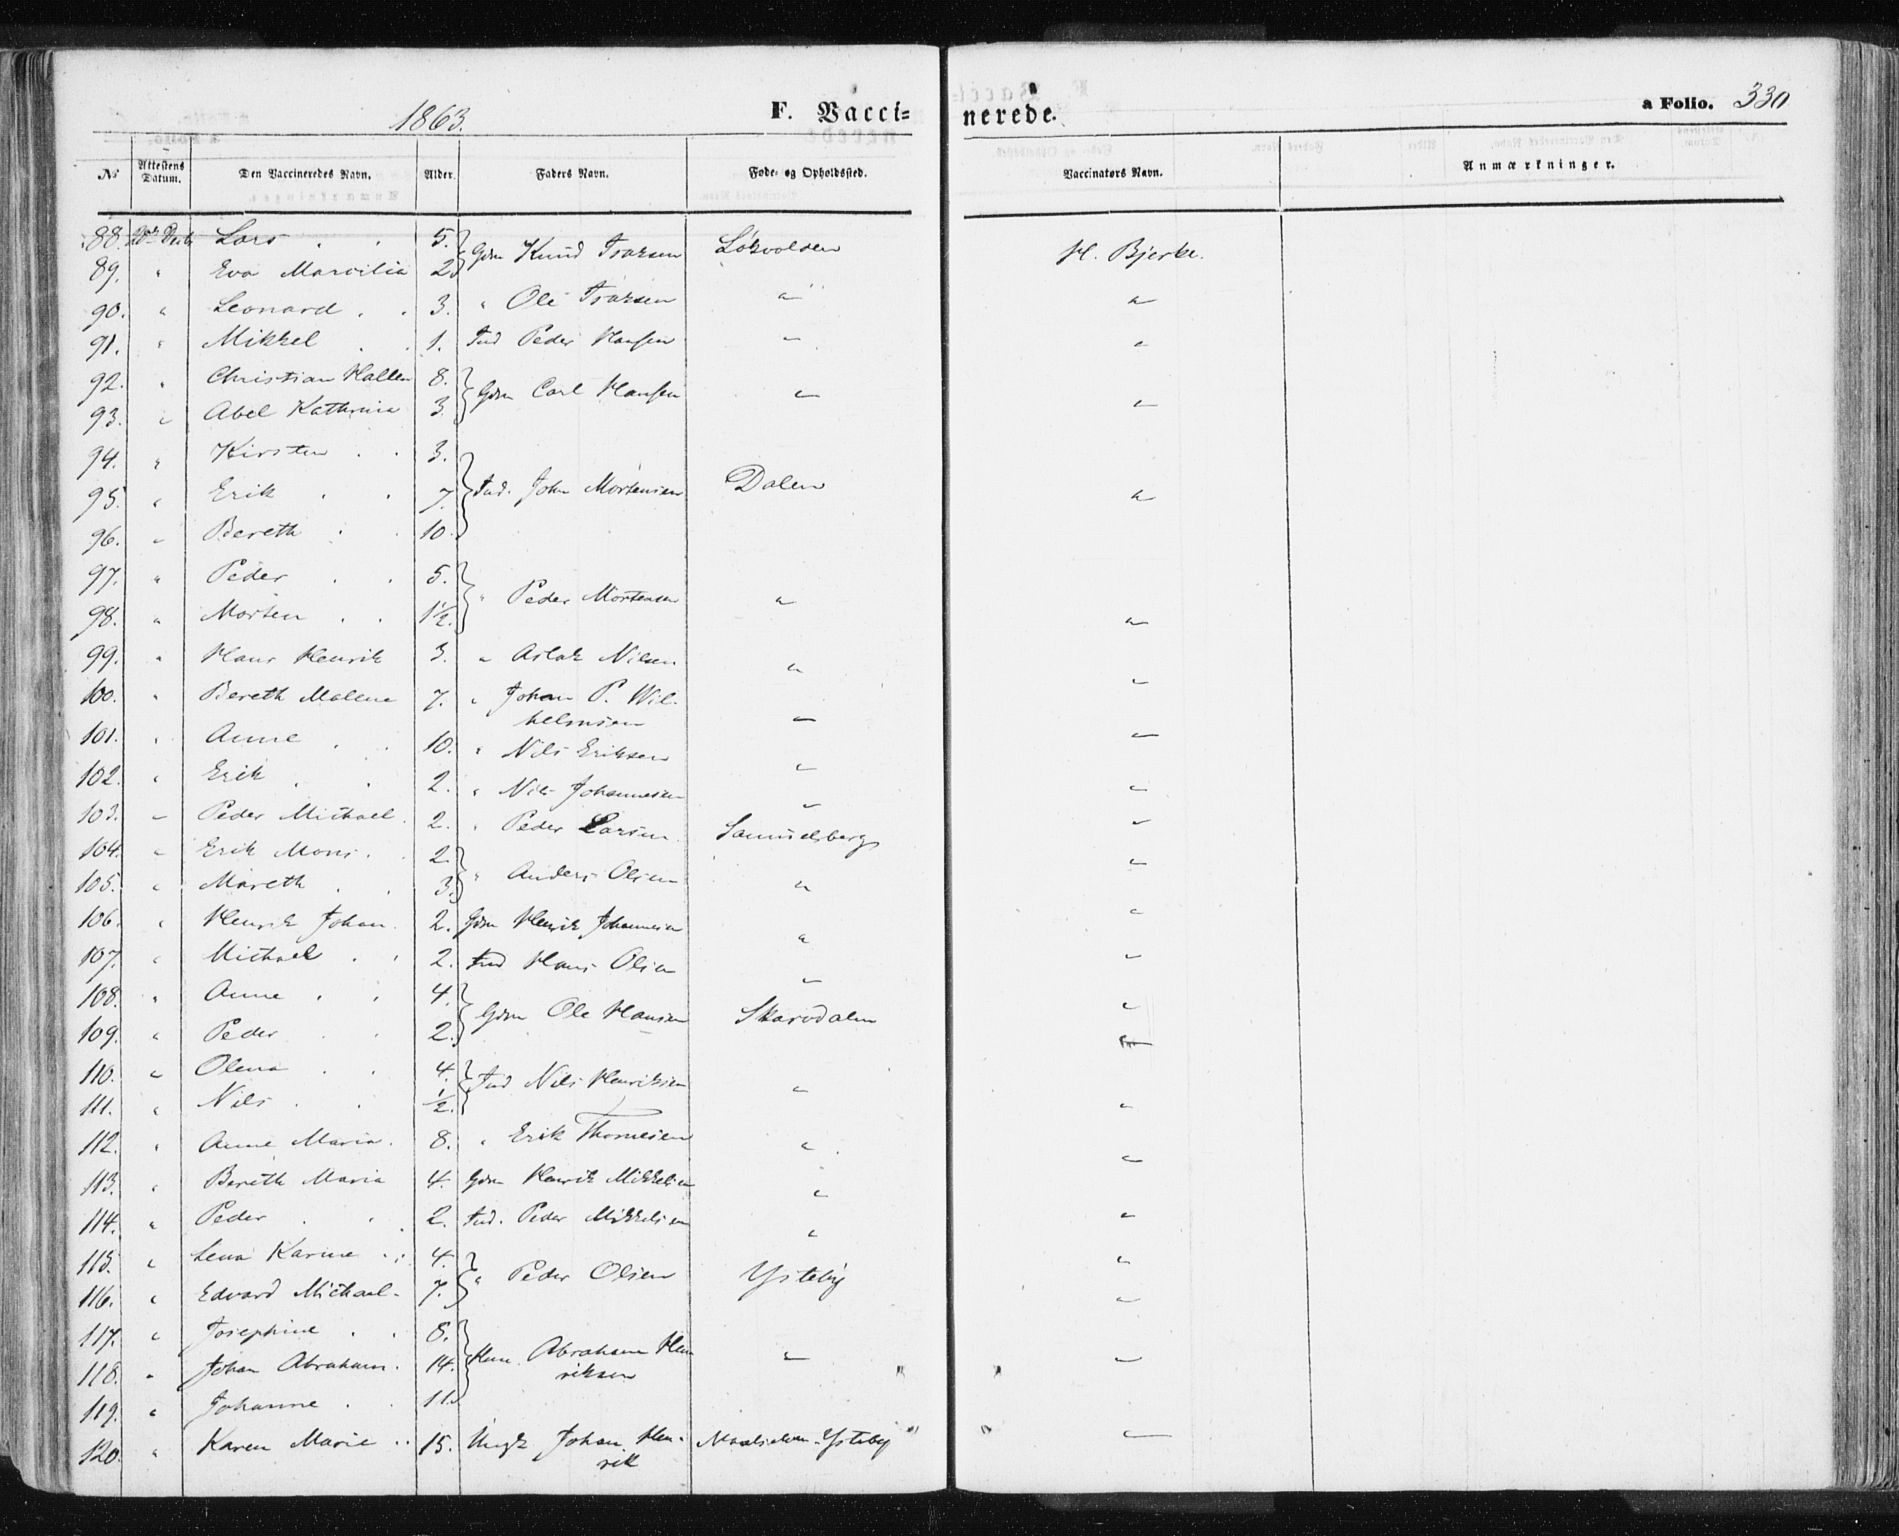 1863.
F. Vacci=
nerede.
a Folio. 330
No
Attestens Datum.
Den Vaccineredes Navn.
Alder.
Faders Navn.
Føde- og Opholdssted.
Vaccinators Navn.
Anmærkninger.
88. Lars . . 5. Gdm Knud Isaksen Løkvolden H. Bjerke.
89. " Eva Marcilia 2
90. " Leonard . . 3. " Ole Isaksen " "
91. " Mikkel . . 1. Ind Peder Hansen " "
92. " Christian Hallen 8. Gdm Carl Hansen " "
93. " Abel Kathrina 3.
94. " Kirsten . . 3.
95. " Erik . . 7. Ind. John Mortensen Dalen "
96. " Bereth . . 10.
97. " Peder . . 5. " Peder Mortensen "
98. " Morten . . 1½. "
99. " Hans Henrik 3. " Aslak Nilsen "
100. " Bereth Malene 7. " Johan P. Wil- "
helmsen "
101. " Anne . . 10. " Nils Eriksen " "
102. " Erik . . 2. " Nils Johannesen " "
103. " Peder Michael. 2. " Peder Larsen Samuelsberg "
104. " Erik Mons. . 2. " Anders Olsen " "
105. " Mareth . . 3.
106. " Henrik Johan. 2. Gdm Henrik Johannesen " "
107. " Michael . . 2. Ind Hans Olsen " "
108. " Anne . . 4. Gdm Ole Hansen Skarvdalen "
109. " Peder . . 2.
110. " Olena . . 4. Ind Nils Henriksen "
111. " Nils . . ½. "
112. " Anne Maria. 8. " Erik Thomesen " "
113. " Bereth Maria 4. Gdm Henrik Mikkelsen "
114. " Peder . . 2. Ind. Peder Mikkelsen " "
115. " Lena Karine . . 4. " Peder Olsen Ysteby "
116. " Edvard Michael. 7. "
117. " Josephine . . 8.
118. " Johan Abraham. 14. Abraham Hen- " "
riksen
119. " Johanne . . 11.
120. " Karen Marie . . 15. Ungk Johan Hen- Ysteby "
rik